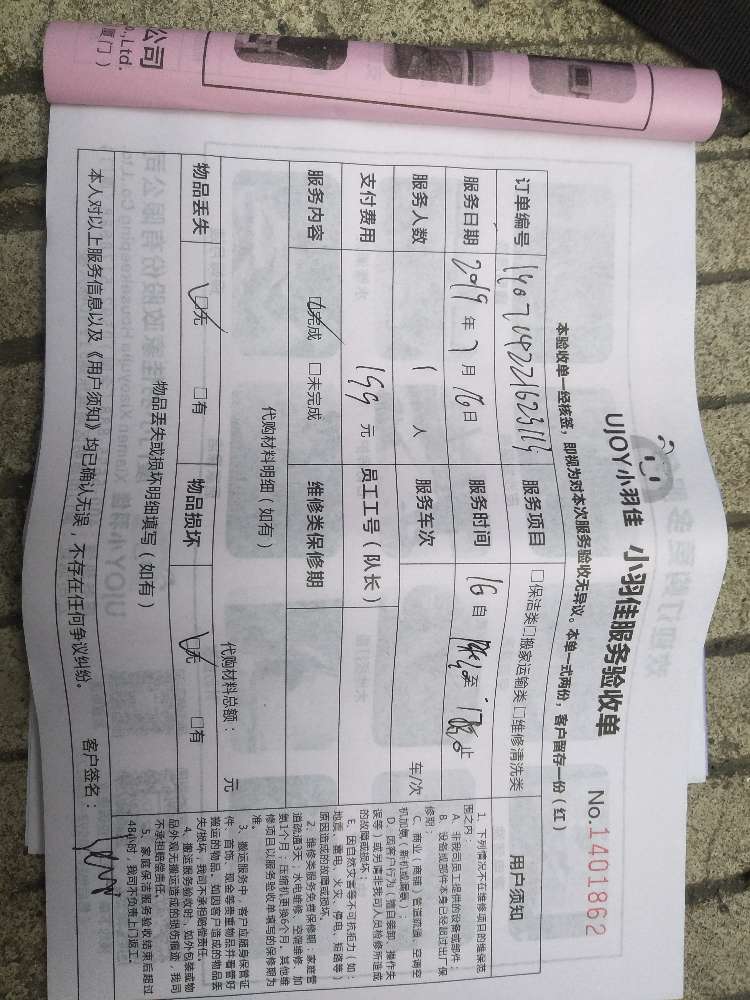 公司
., Ltd.
厦门）
UJOY小羽佳 小羽佳服务验收单
No.1401862
本验收单一经核签，即视为对本次服务验收无异议。本单一式两份，客户留存一份（红）
订单编号 服务项目 □保洁类□搬家运输类□维修清洗类
服务日期 2019年7月16日 服务时间 16日 至 止
服务人数 1 人 服务车次 车/次
支付费用 199 元 员工工号（队长）
服务内容 □完成 □未完成 维修类保修期
代购材料明细（如有） 代购材料总额： 元
物品丢失 □无 □有 物品损坏 □无 □有
物品丢失或损坏明细填写（如有）
本人对以上服务信息以及《用户须知》均已确认无误，不存在任何争议纠纷。 客户签名：
用户须知
1. 下列情况不在维修项目的维保范
围之内：
A. 非我司员工提供的设备或部件；
B. 设备或部件本身已经超过出厂保
修期；
C. 商业（商铺）管道疏通、空调空
机加氨（新机或漏氨）；
D. 因客户行为（擅自装卸、操作失
误等）或另请非我司人员检修所造成
的故障或损坏；
E. 因自然灾害等不可抗拒力（如：
地震、雷电、火灾、停电、短路等）
原因造成的故障或损坏。
2. 维修类服务免费保修期：家庭管
道疏通3天；水电维修、空调维修、加
氨1个月；压缩机更换6个月。其他维
修项目以服务验收单填写的保修期为
准。
3. 搬运服务中，客户应随身保管证
件、首饰、现金等贵重物品并看管好
搬运的物品，如因客户造成的物品丢
失/损坏，我司不承担赔偿责任。
4. 搬运服务验收时，如外包装或物
品外观无搬运造成的损伤痕迹，我司
不承担赔偿责任。
5. 家庭保洁服务验收结束后超过
48小时，我司不负责上门返工。